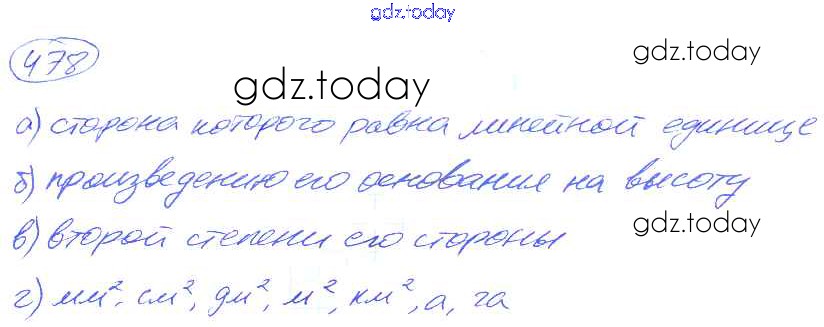 gdz.today
478
gdz.today
gdz.today
а) сторона которого равна линейной единице
б) произведению его основания на высоту
gdz.today
в) второй степени его стороны
г) мм², см², дм², м², км², а, га